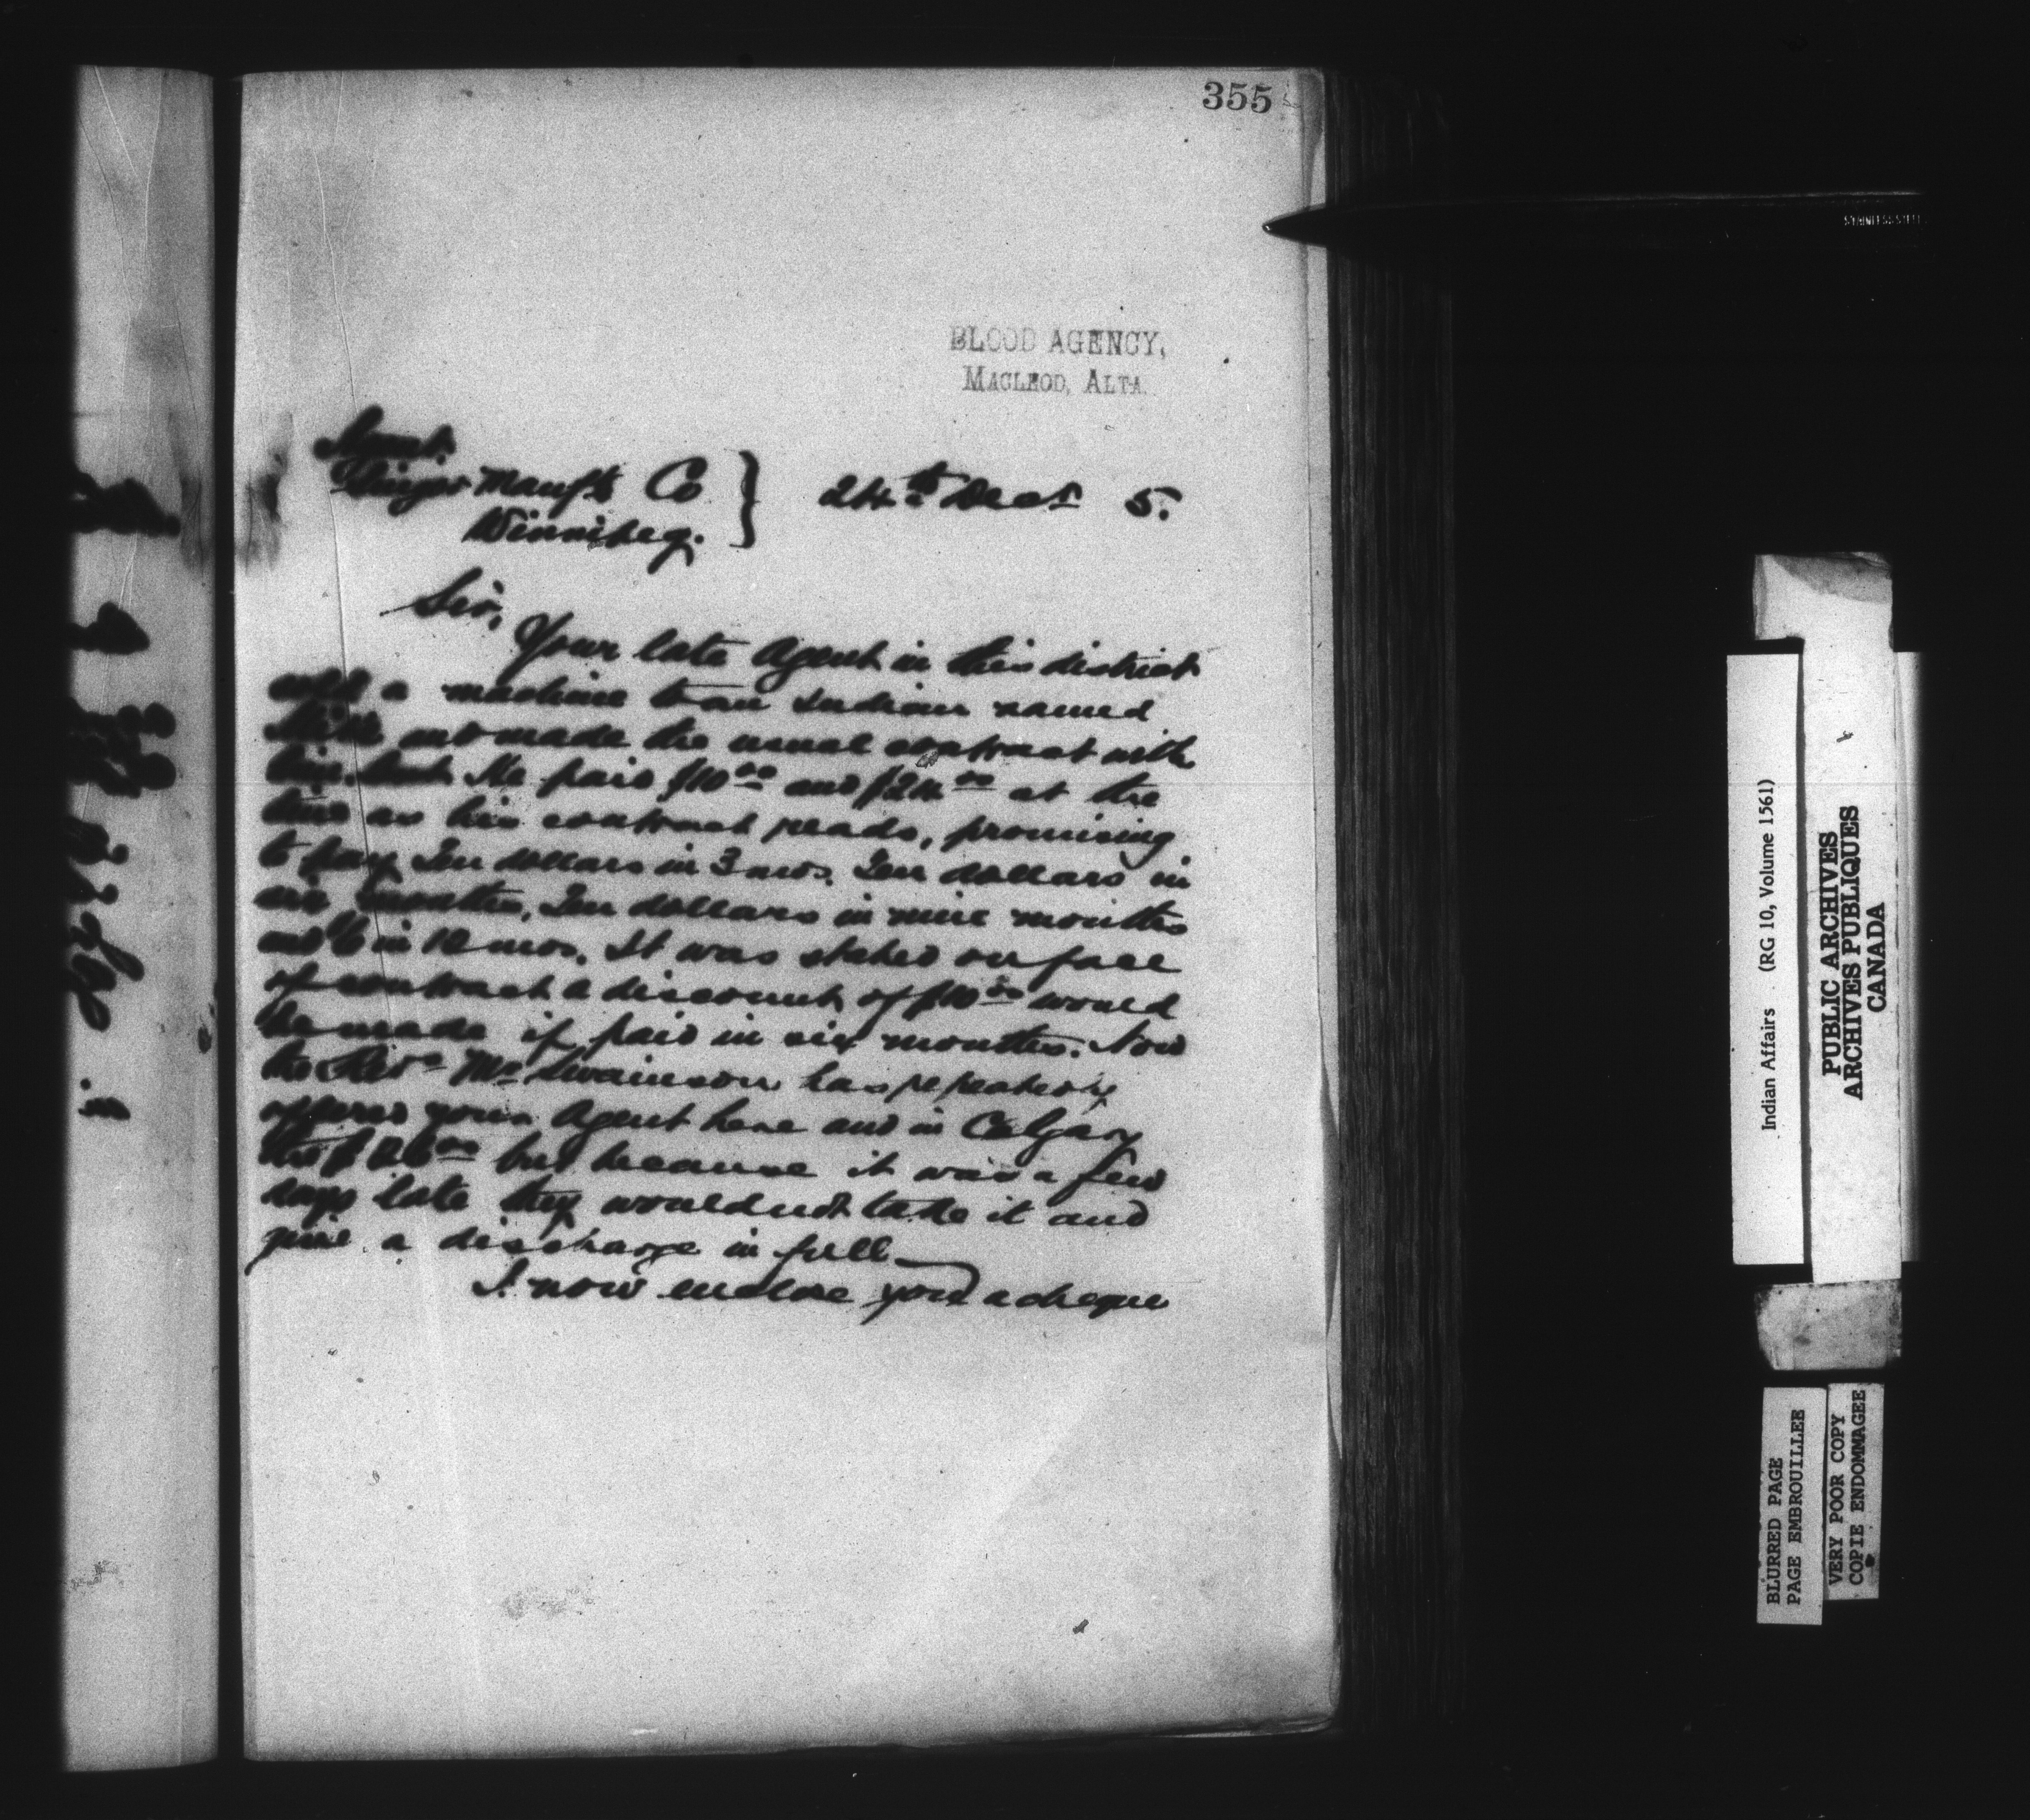 355
BLOOD AGENCY,
MACLEOD, ALTA.
Agent.
Singer Manfg Co
Winnipeg.
24th Decr 5.
Sir,
Your late Agent in this district
sold a machine to an Indian named
and made the usual contract with
him. He paid $10.00 and $24.00 at the
time as his contract reads, promising
to pay Ten dollars in 3 mos. Ten dollars in
six months, Ten dollars in nine months
and 6 in 12 mos. It was stated on face
of contract a discount of $10.00 would
be made if paid in six months. Now
the Revd Mr Swainson has repeatedly
offered your Agent here and in Calgary
the $26.00 but because it was a few
days late they would not take it and
give a discharge in full
I now enclose you a cheque
Indian Affairs (RG 10, Volume 1561)
PUBLIC ARCHIVES
ARCHIVES PUBLIQUES
CANADA
BLURRED PAGE
PAGE EMBROUILLEE
VERY POOR COPY
COPIE ENDOMMAGEE